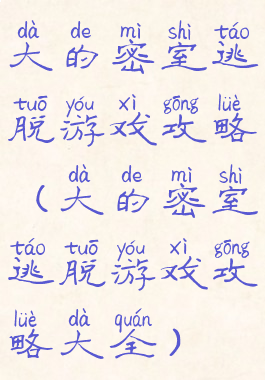 dà de mì shì táo
大的密室逃
tuō yóu xì gōng lüè
脱游戏攻略
dà de mì shì
（大的密室
táo tuō yóu xì gōng
逃脱游戏攻
lüè dà quán
略大全）